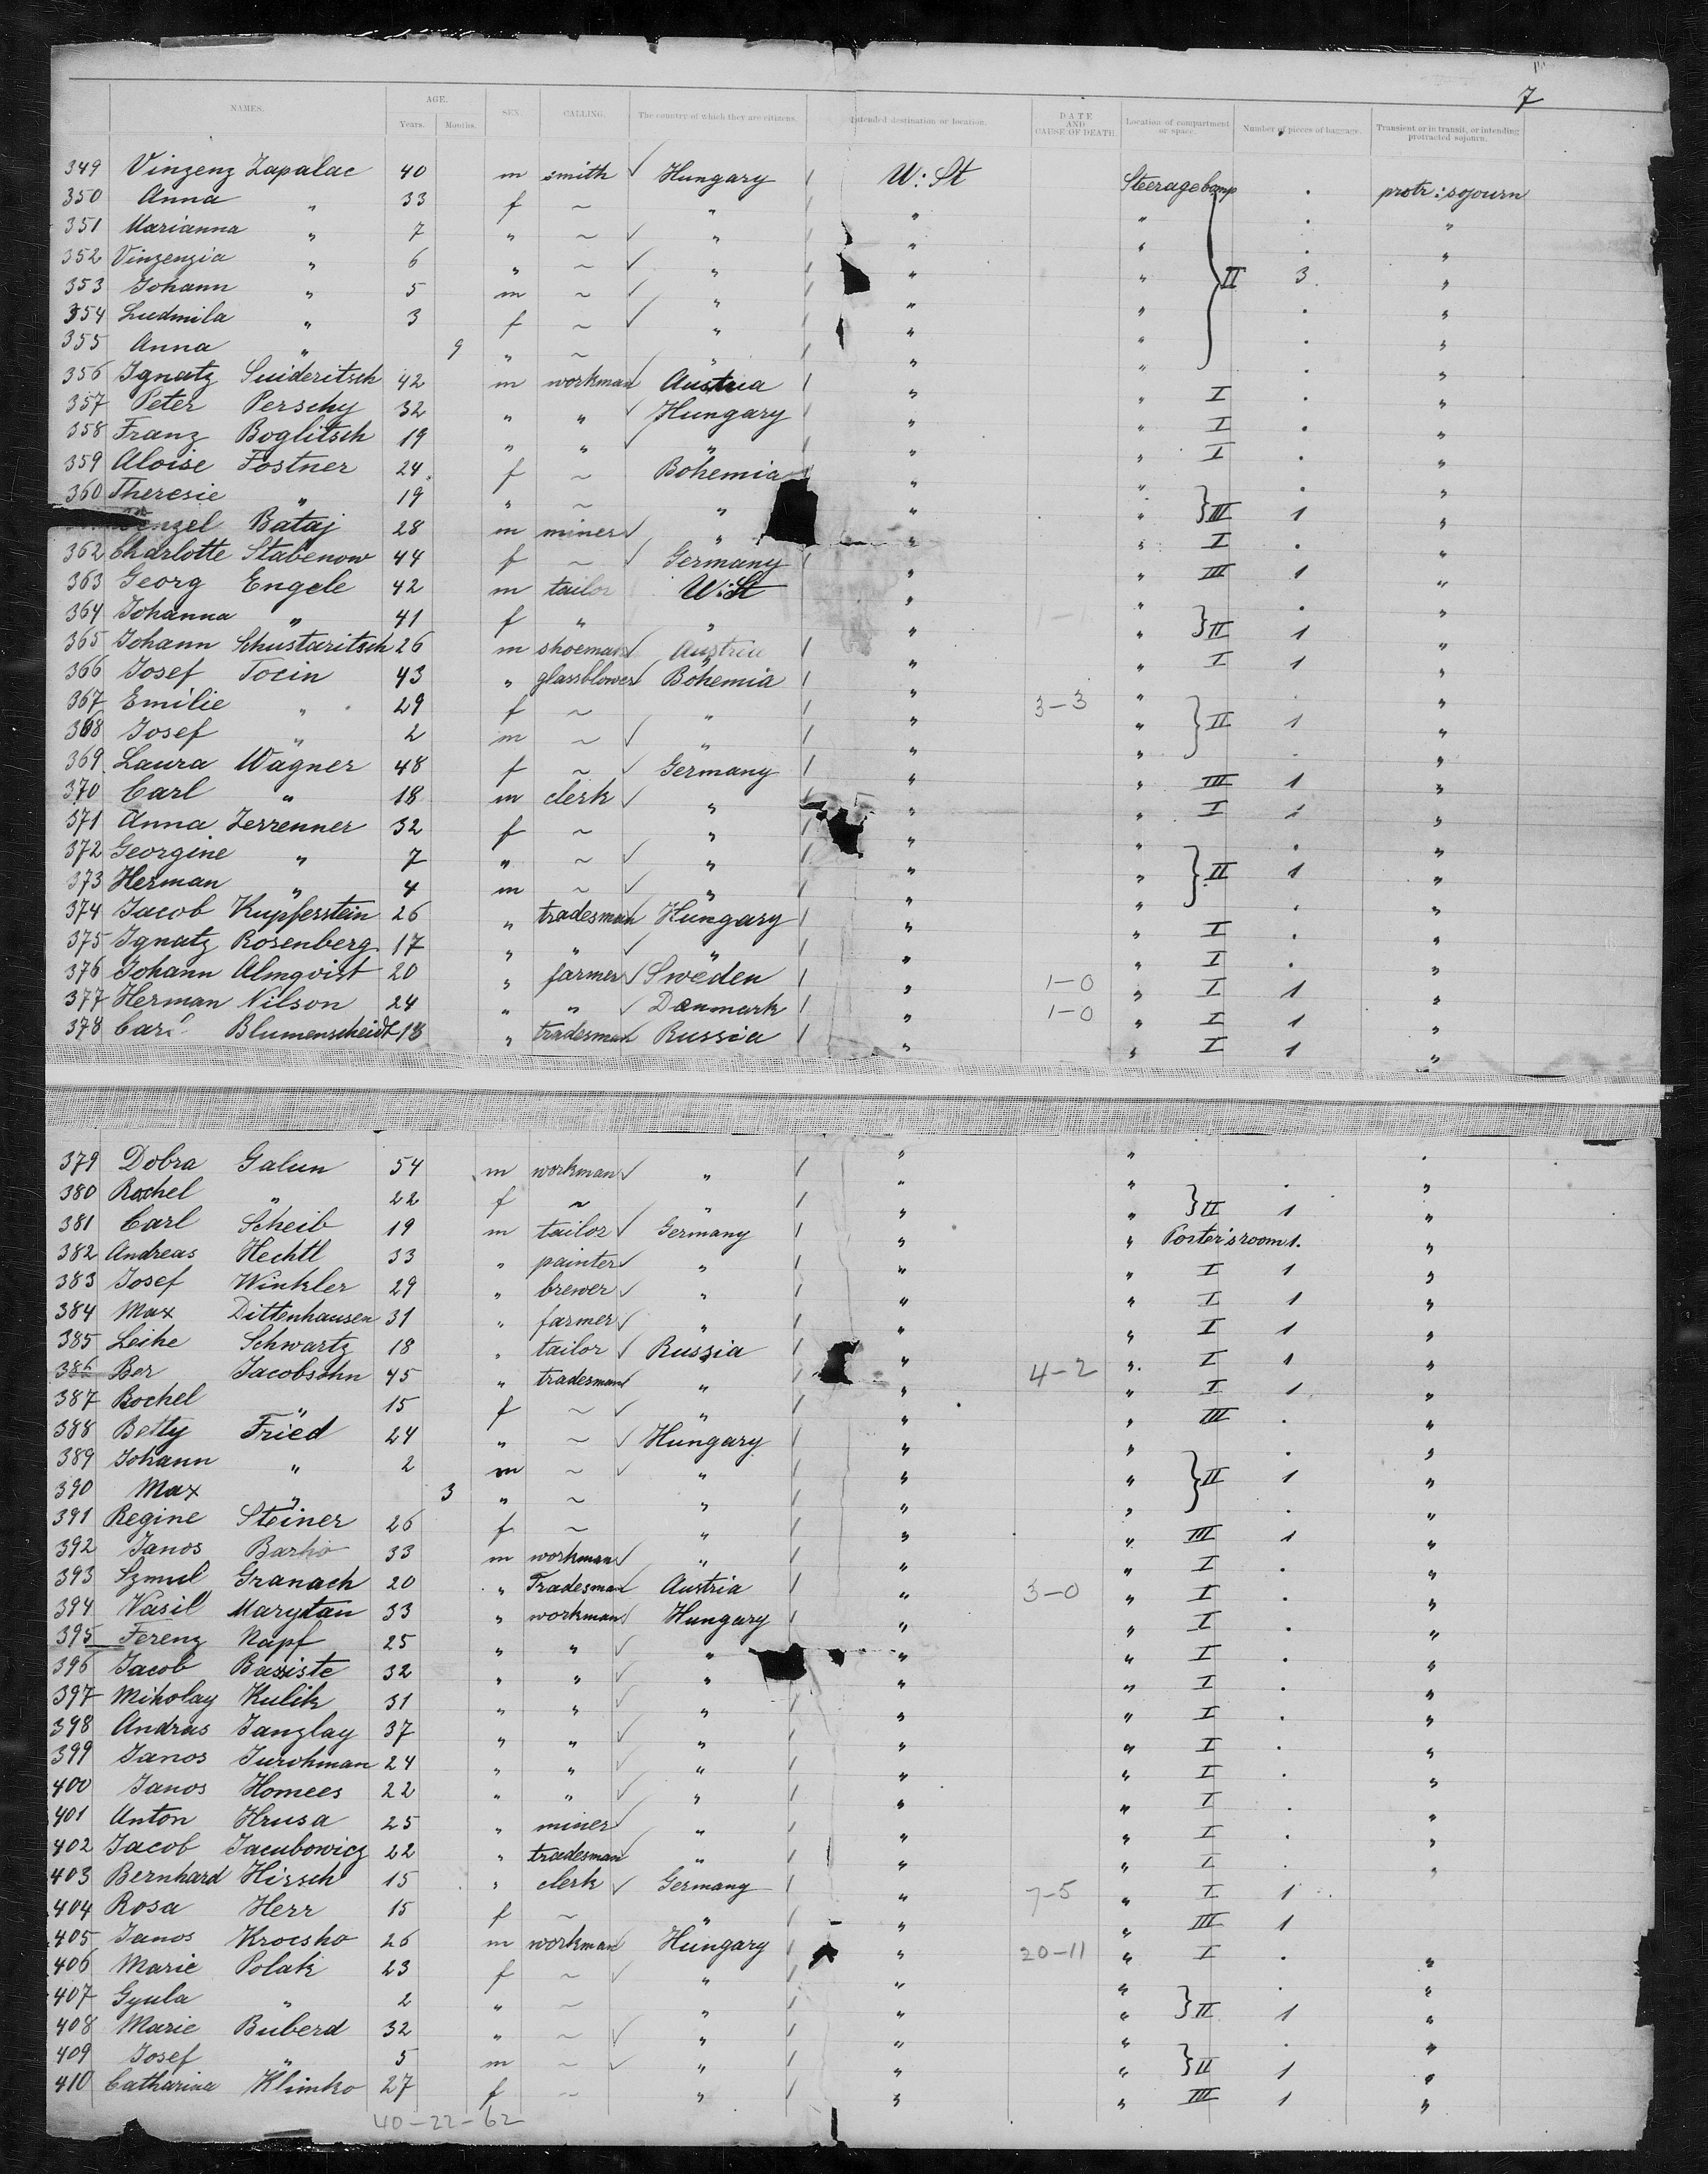 7
NAMES. AGE. Years. Months. SEX. CALLING. The country of which they are citizens. Intended destination or location. DATE AND CAUSE OF DEATH. Location of compartment or space. Number of pieces of baggage. Transient or in transit, or intending protracted sojourn.
349 Vinzenz Zapalac 40 m smith ✓ Hungary / W: St Steerage . protr: sojourn
350 Anna " 33 f ~ " / " " . "
351 Marianna " 7 " ~ ✓ " / " " . "
352 Vinzenzia " 6 " ~ ✓ " / " " II 3. "
353 Johann " 5 m ~ ✓ " / " " . "
354 Ludmila " 3 f ~ ✓ " / " " . "
355 Anna " 9 " ~ " / " " . "
356 Ignatz Suideritsch 42 m workman Austria / " " I . "
357 Peter Perschy 32 " " ✓ Hungary / " " I . "
358 Franz Boglitsch 19 " " ✓ " / " " I . "
359 Aloise Fostner 24 f ~ Bohemia / " " . "
360 Theresie " 19 " ~ " " " III 1 "
Wenzel Bataj 28 m miner ✓ " " " I . "
362 Charlotte Stabenow 44 f ~ ✓ Germany / " " III 1 "
363 Georg Engele 42 m tailor W: St " " . "
364 Johanna " 41 f " " " " II 1 "
365 Johann Schustaritsch 26 m shoemak ✓ Austria / " " I 1 "
366 Josef Tocin 43 " glassblower ✓ Bohemia / " " . "
367 Emilie " 29 f ~ " / " 3-3 " II 1 "
368 Josef " 2 m ~ ✓ " / " " . "
369 Laura Wagner 48 f ~ ✓ Germany / " " III 1 "
370 Carl " 18 m clerk ✓ " / " " I 1 "
371 Anna Zerrenner 32 f ~ " / " " . "
372 Georgine " 7 " ~ ✓ " / " " II 1 "
373 Herman " 4 m ~ ✓ " / " " . "
374 Jacob Kupferstein 26 " tradesman Hungary / " " I . "
375 Ignatz Rosenberg 17 " " ✓ " / " " I . "
376 Johann Almqvist 20 " farmer ✓ Sweden / " 1-0 " I 1 "
377 Herman Nilson 24 " " ✓ Danmark / " 1-0 " I 1 "
378 Carl Blumenscheidt 18 " tradesman Russia / " " I 1 "
379 Dobra Galun 54 m workman ✓ " / " " . "
380 Rochel " 22 f ~ " / " " II 1 "
381 Carl Scheib 19 m tailor ✓ Germany / " " Porter's room 1. "
382 Andreas Hechtl 33 " painter ✓ " / " " I 1 "
383 Josef Winkler 29 " brewer ✓ " / " " I 1 "
384 Max Dittenhausen 31 " farmer ✓ " / " " I 1 "
385 Leike Schwartz 18 " tailor ✓ Russia / " " I 1 "
386 Ber Jacobsohn 45 " tradesman " / " 4-2 " I 1 "
387 Rochel " 15 f ~ ✓ " / " " III . "
388 Betty Fried 24 " ~ ✓ Hungary / " " . "
389 Johann " 2 m ~ ✓ " / " " II 1 "
390 Max " 3 " ~ " / " " . "
391 Regine Steiner 26 f ~ " / " " III 1 "
392 Janos Barho 33 m workman ✓ " / " " I . "
393 Szmul Granach 20 " Tradesman Austria / " 3-0 " I . "
394 Vasil Marytan 33 " workman Hungary / " " I . "
395 Ferenz Napf 25 " " ✓ " / " " I . "
396 Jacob Basiste 32 " " ✓ " " " I . "
397 Mikolay Kulik 31 " " ✓ " / " " I . "
398 Andras Janzlay 37 " " ✓ " / " " I . "
399 Janos Jurohman 24 " " ✓ " / " " I . "
400 Janos Homees 22 " " ✓ " / " " I . "
401 Anton Hrusa 25 " miner ✓ " / " " I . "
402 Jacob Jacubowicz 22 " tradesman " / " " I . "
403 Bernhard Hirsch 15 " clerk ✓ Germany / " 7-5 " I 1
404 Rosa Herr 15 f ~ " / " " III 1
405 Janos Krocsko 26 m workman Hungary / " 20-11 " I . "
406 Marie Polak 23 f ~ ✓ " / " " . "
407 Gyula " 2 " ~ " / " " II 1 "
408 Marie Buberd 32 " ~ ✓ " / " " . "
409 Josef " 5 m ~ ✓ " / " " II 1 "
410 Catharina Klimko 27 f ~ " / " " III 1 "
40-22-62